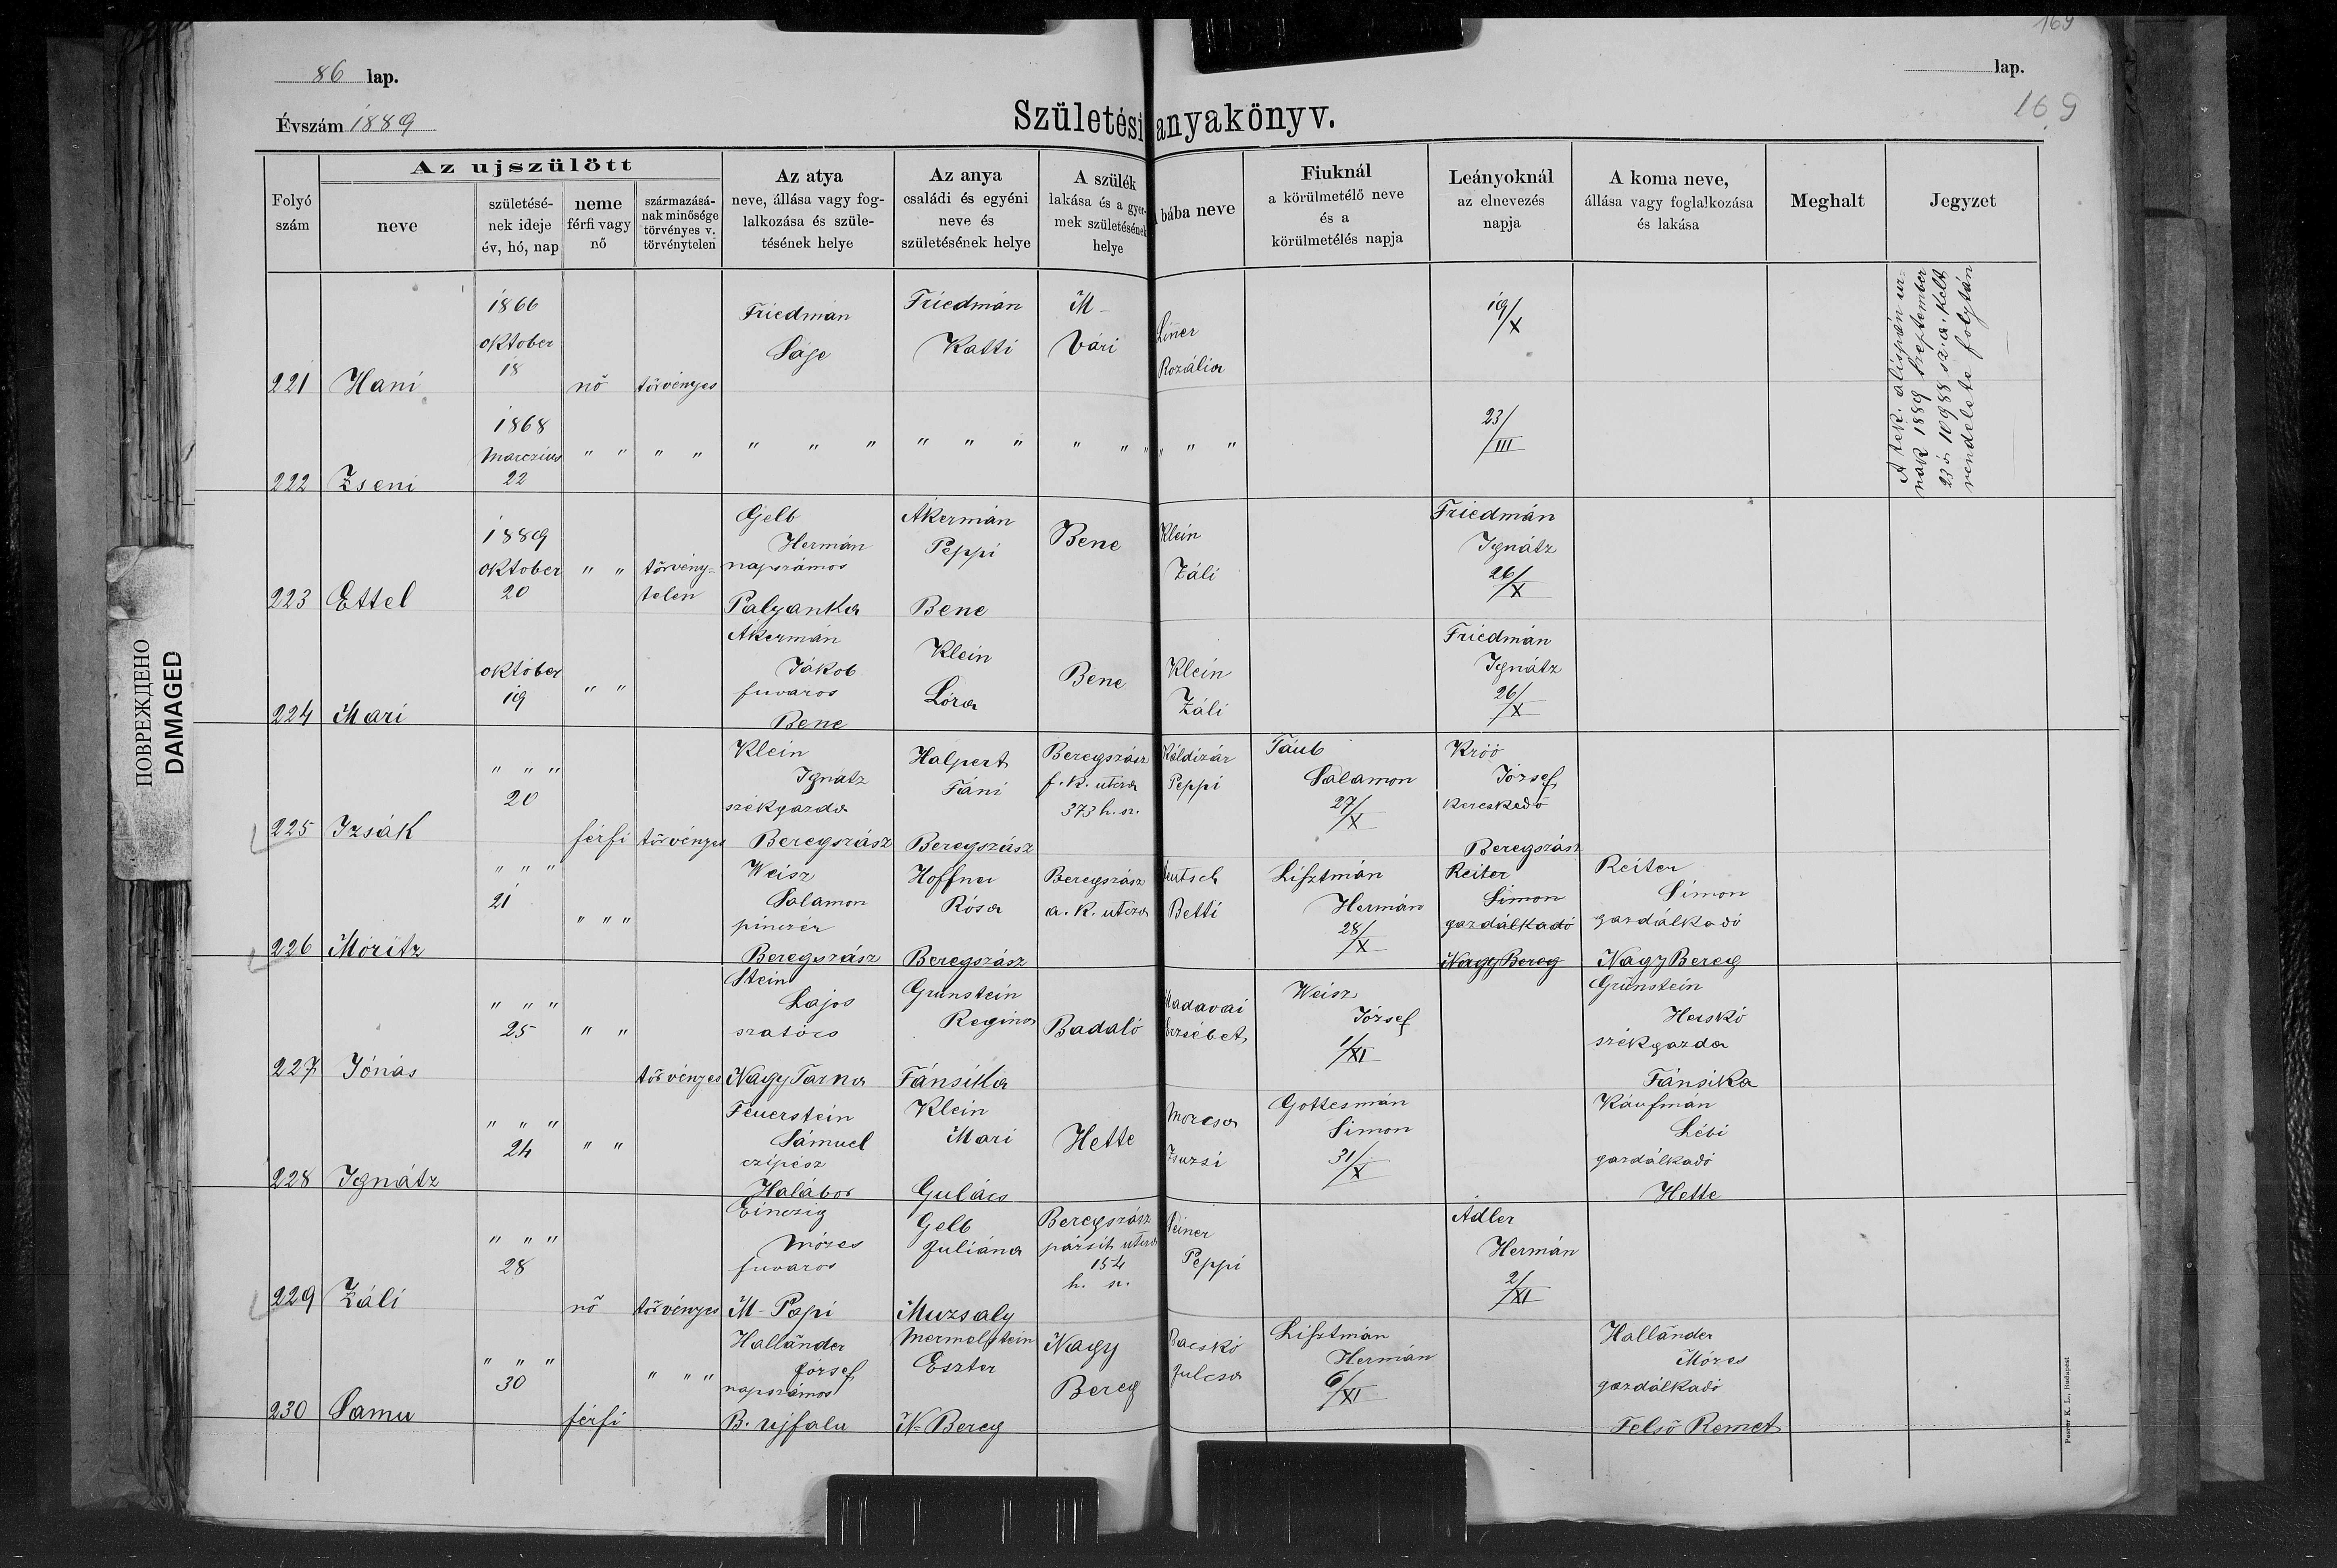 169
86 lap.
lap.
Évszám 1889
Születési anyakönyv.
169
Folyó szám
Az ujszülött
neve
születésének ideje év, hó, nap
neme férfi vagy nő
származásának minősége törvényes v. törvénytelen
Az atya neve, állása vagy foglalkozása és születésének helye
Az anya családi és egyéni neve és születésének helye
A szülék lakása és a gyermek születésének helye
bába neve
Fiuknál a körülmetélő neve és a körülmetélés napja
Leányoknál az elnevezés napja
A koma neve, állása vagy foglalkozása és lakása
Meghalt
Jegyzet
221 Hani 1866 október 18 nő törvényes Friedmán Sáje Friedmán Katti M- Vári Liner Rozália 19/X
A tek. alispán ur-
nak 1889 szeptember
23. 10988 sz. a. kelt
rendelete folytán
222 Zseni 1868 Marczius 22 " " " " " " " " " " " " " " " 23/III
223 Ettel 1889 október 20 " " törvény= telen Gelb Hermán napszámos Palyanka Akermán Peppi Bene Bene Klein Záli Friedmán Ignátz 26/X
224 Mari október 19 " " Akermán Jákob fuvaros Bene Klein Lóra Bene Klein Záli Friedmán Ignátz 26/X
225 Izsák " " " 20 férfi törvényes Klein Ignátz székgazda Beregszász Halpert Fáni Beregszász Beregszász f. k. utcza 373 h. sz. Peppi Táub Salamon 27/X Króó József kereskedő Beregszász
226 Móritz " " " 21 " " " Weisz Salamon pinczér Beregszász Hoffner Rósa Beregszász Beregszász a. k. utcza Betti Lisztmán Hermán 28/X Reiter Simon gazdálkadó Nagy Bereg Reiter Simon gazdálkadó Nagy Bereg
227 Jónás " " " 25 " " törvényes Stein Lajos szatócs Nagy Tarna Grünstein Regina Fánsika Badaló Madavai Erzsébet Weisz József 1/XI Grünstein Herskó székgazda Fánsika
228 Ignátz " " " 24 " " Feuerstein Sámuel czipész Halábor Klein Mari Gulács Hette Morcsa Zsuzsi Gottesmán Simon 31/X Káufmán Lébi gazdálkadó Hette
229 Záli " " " 28 nő törvényes Einczig Mózes fuvaros M- Papi Gelb Juliána Muzsaly Beregszász utcza 154 h. sz. Peppi Adler Hermán 2/XI
230 Samu " " " 30 férfi " " " Halländer József napszámos B. ujfalu Mermelstein Eszter N- Bereg Nagy Bereg Bacskó Julcsa Lisztmán Hermán 6/XI Halländer Mózes gazdálkadó Felső Remet
ПОВРЕЖДЕНО
DAMAGED
K. L., Budapest